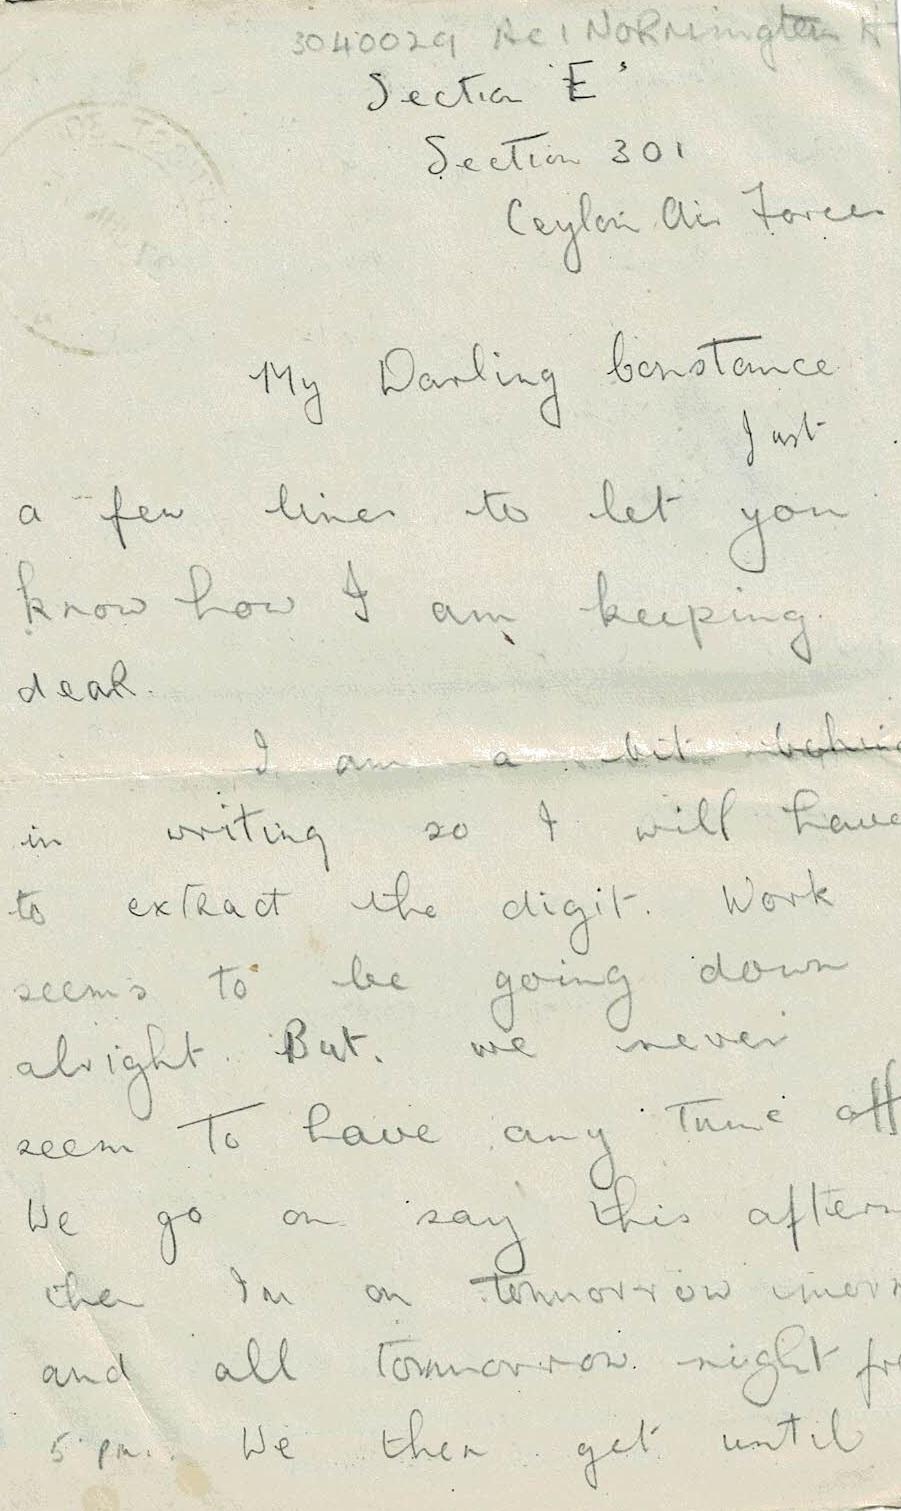 3040029 AC1 NORMington H
Section 'E'
Section 301
Ceylon Air Forces
My Darling Constance
Just
a few lines to let you
know how I am keeping
dear.
I am a bit behin
in writing so I will have
to extract the digit. Work
seems to be going down
alright. But. we never
seem to have any time off
We go on say this aftern
then Im on tommorrow morn
and all tommorrow night fr
5 pm. We then get until